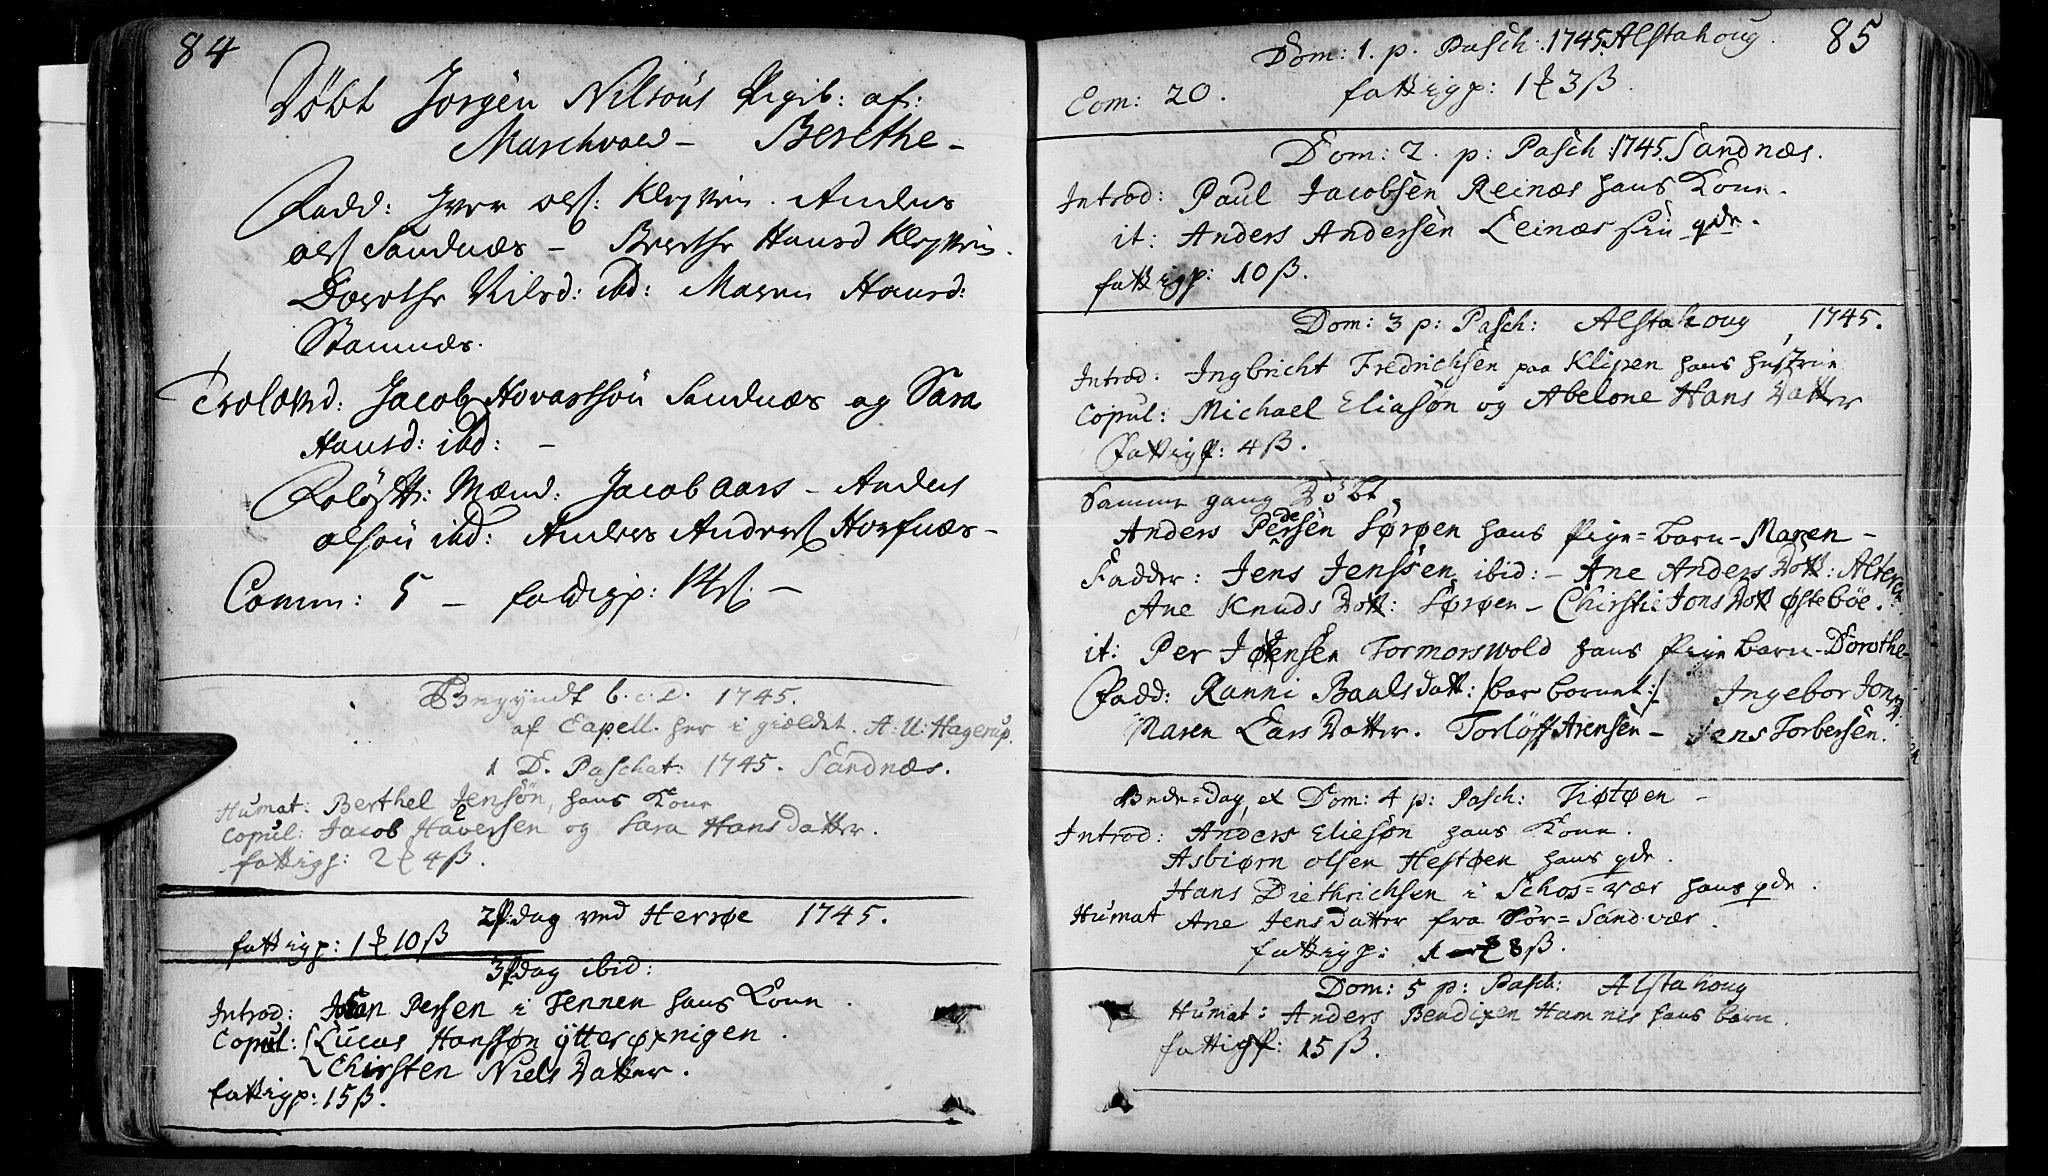 84
Døbt Jorgen Nilsøns Pigib: af:
Marchvold – Berethe –
Fadd: Iver ols: Kleyven. Anders
ols Sandnæs – Berethe Hansd Kleyven.
Dorothe Nilsd: ibd: Maren Hansd:
Stamnæs.
Trolovd: Jacob Hovartsøn Sandnæs og Sara
Hansd: ibd: –
Forløft: Mænd: Jacob Aars – Anders
olsøn ibd: Anders Anders Horfnæs –
Comm: 5 – fattigp:
Begyndt b.c.D. 1745.
af Capell. her i giældet. A: U: Hagerup.
1 D. Paschat: 1745. Sandnæs.
Humat: Berthel Jensøn, hans Kone
Copul: Jacob Haversen og Sara Hans datter.
fattigp: 2 ꝑ 4 ß.
2 P: dag ved Herrøe 1745.
fattigp: 1 ꝑ 10 ß
3 P dag ibid:
Introd: Persen i Tennen hans Kone.
Copul: Lucas Hansøn ytterøxnigen.
Chirsten Niels Datter.
fattigp: 15 ß.
85
Dom: 1. p. Pasch: 1745. Alstahoug.
Com: 20. fattigp: 1 ꝑ 3 ß.
Dom: 2. p: Pasch: 1745. Sandnæs.
Introd: Paul Jacobsen Reinæs hans Kone.
it: Anders Andersen Leinæs sin qde.
fattigp: 10 ß.
Dom: 3 p: Pasch: Alstahoug, 1745.
Introd: Ingbricht Fredrichsen paa Klipen hans hustrue
Copul: Michael Eliasøn og Abelone Hans Datter
Fattigp: 4 ß.
Samme gang Døbt
Anders Pedersen Sørøen hans Pige=barn – Maren –
Fadder: Jens Jenssen ibid: – Ane Anders Dott: Alteren
Ane Knuds Dott: Sørøen – Chirstie Jons Dott Østebøe.
it: Per Tormorswold hans Pige barn – Dorothe –
Fadd: Ranni Baals datt: /: bar barnet :/ Ingebor Jons D:
Maren Lars Datter. Torløff Arensen – Jens Torbersen.
Bede=dag, et Dom: 4 p: Pasch: Tiøtøen –
Introd: Anders Eliesøn hans Kone.
Asbiørn olsen Hestøen hans qde.
Hans Diethrichsen i Schos=vær hans qde.
Humat Ane Jens datter fra Sør=Sandvær.
fattigp: 1 ꝑ 8 ß.
Dom: 5 p: Pasch: Alstahoug
Humat: Anders Bendixen Hamnes hans barn.
fattigp: 15 ß.